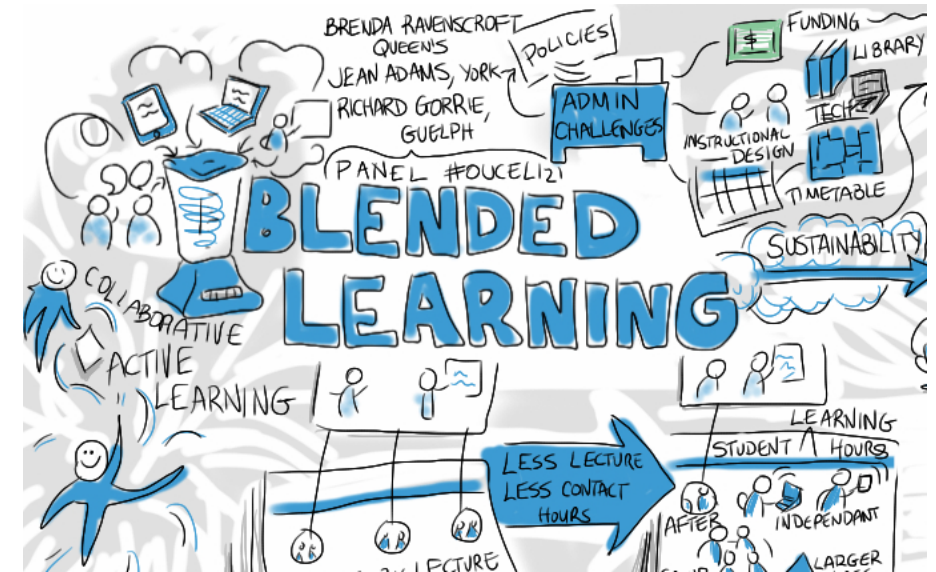 BRENDA RAVENSCROFT
QUEENS
JEAN ADAMS, YORK
RICHARD GORRIE,
GUELPH
PANEL #OUCEL121
POLICIES
ADMIN
CHALLENGES
FUNDING
LIBRARY
TECH
INSTRUCTIONAL
DESIGN
TIMETABLE
$
BLENDED
LEARNING
SUSTAINABILITY
COLLABORATIVE
ACTIVE
LEARNING
LESS LECTURE
LESS CONTACT
HOURS
LEARNING
STUDENT ^ HOURS
AFTER
INDEPENDANT
LECTURE
LARGER